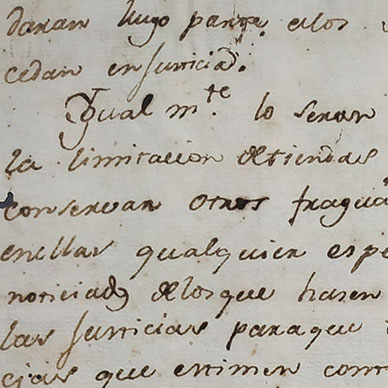 daran lugo parte alos
cedan en Justicia.
Ygual m.te lo seran
la limitacion de tiendas
conservar otros fragua
enellas qualquier espe
noticiads delos que hasen
las Justicias paraque
cias que estimen com